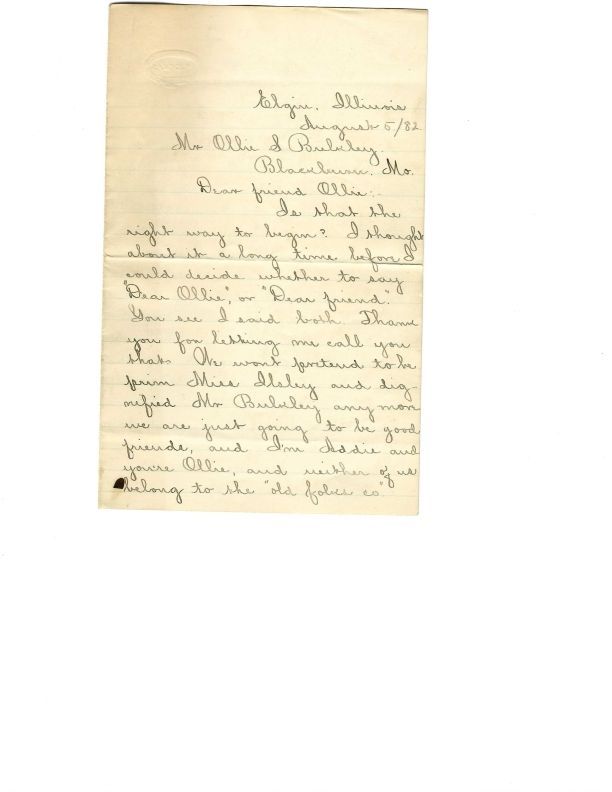 Elgin, Illinois
August 5/82
Mr Ollie S Bulkley.
Blackburn, Mo.
Dear friend Ollie:-
Is that the
right way to begin? I thought
about it a long time before I
could decide whether to say
"Dear Ollie", or "Dear friend".
You see I said both. Thank
you for letting me call you
that. We wont pretend to be
prim Miss Ilsley and dig-
nified Mr Bulkley any more
we are just going to be good
friends, and I'm Addie and
you're Ollie, and neither of us
belong to the "old folks co"